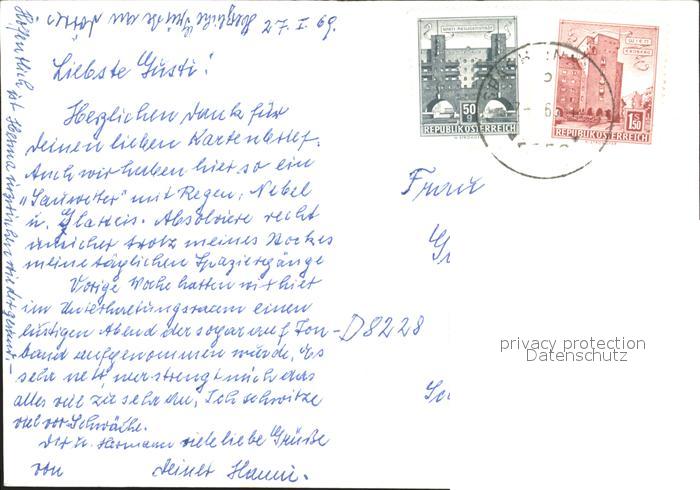 27. I. 69.
Liebste Gusti!
Herzlichen Dank für
Deinen lieben Kartenbrief.
Auch wir haben hier so ein
„Sauwetter" mit Regen, Nebel
u. Glatteis. Absolviere recht
unsicher trotz meines Stockes
meine täglichen Spaziergänge
Vorige Woche hatten wir hier
im Unterhaltungsraum einen
lustigen Abend der sogar auf Ton-
band aufgenommen wurde. Es
sehr nett, nur strengt mich das
alles viel zu sehr an. Ich schwitze
viel vor Schwäche.
Dir u. Hermann viele liebe Grüße
von Deiner Hanni.
Hoffentlich ist Herma inzwischen wieder gesund.-
50 g
REPUBLIK ÖSTERREICH
WIEN
1S50
REPUBLIK ÖSTERREICH
Frau
D 8228
privacy protection
Datenschutz